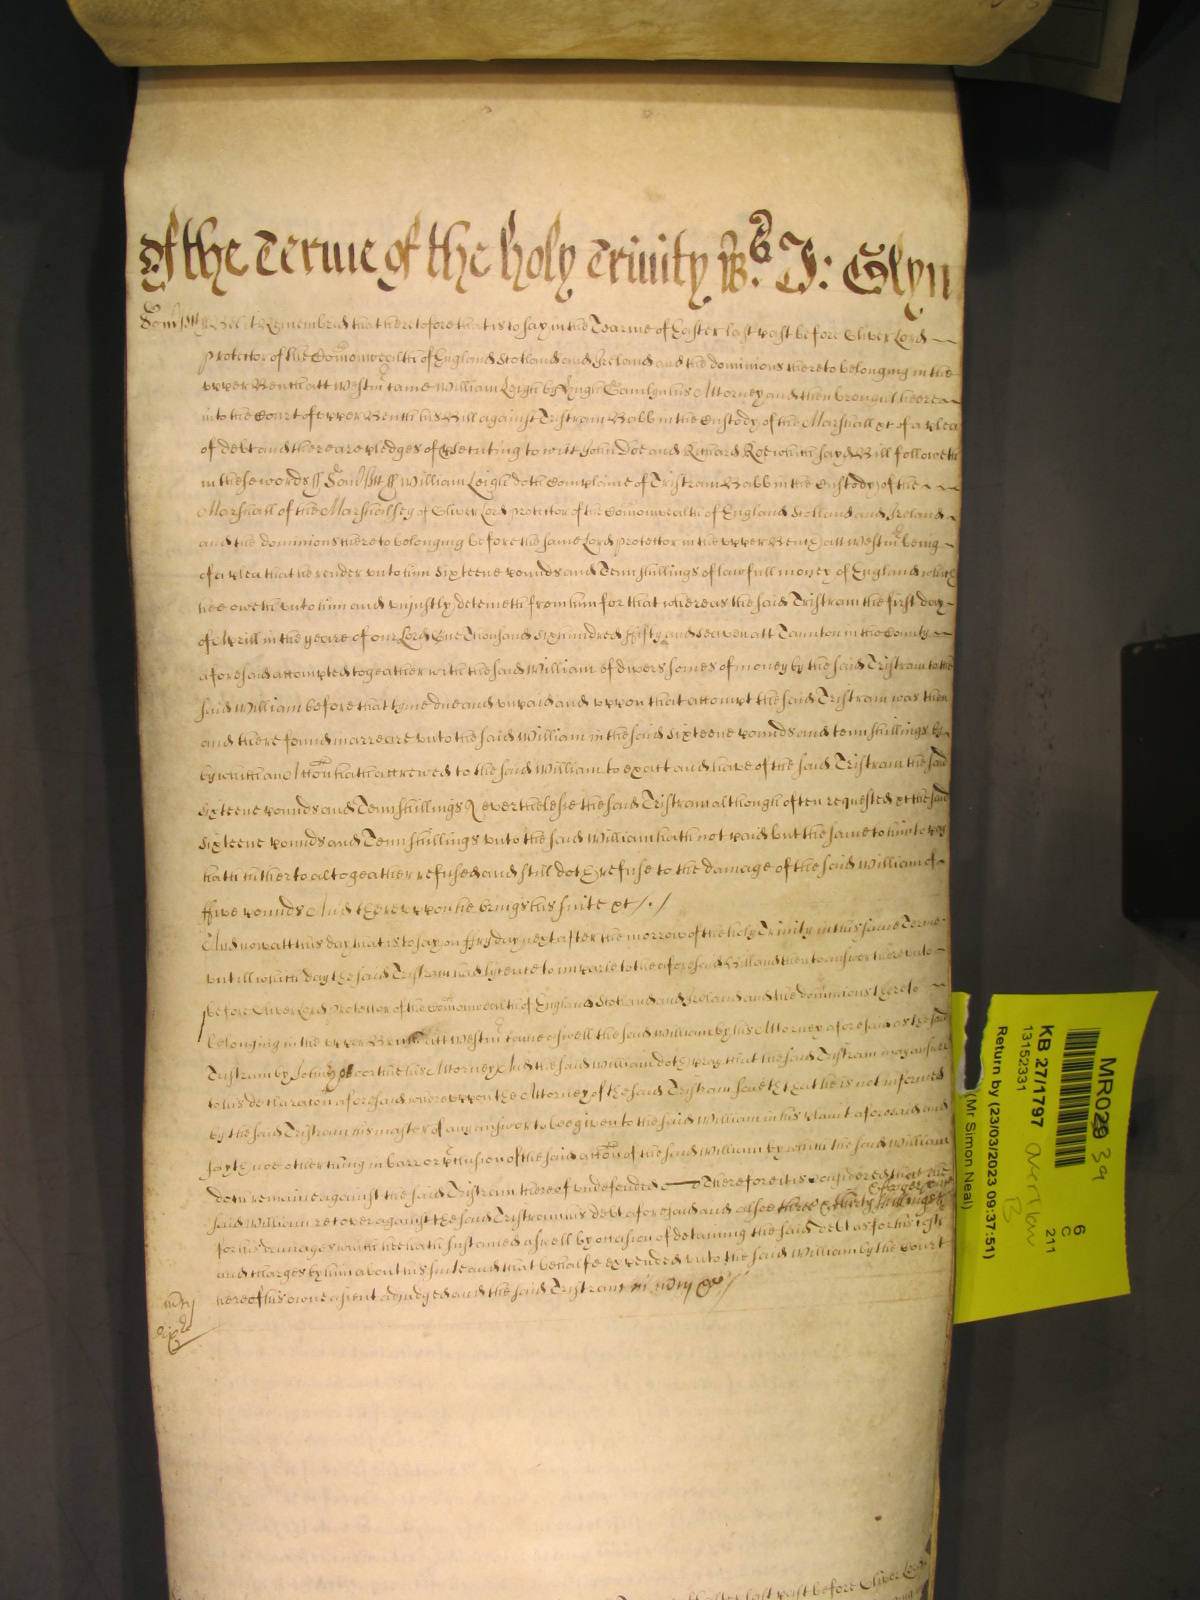 Of the Terme of the holy Trinity Ro: J: Glyn
Som'sett ss Be it Remembred that heretofore that is to say in the Tearme of Easter last past before Oliver Lord
Protector of the Comonwealth of England Scotland and Ireland and the dominions thereto belonging in the
upper Bench att Westmr came William Leigh by Hugh his Attorney and then brought heere
into the Court of upper Bench his Bill against Tristram Babb in the Custody of the Marshall &c of a plea
of debt and there are pledges of psecuting to witt John Doe and Richard Roe which sayd Bill followeth
in these words ss Som'sett ss William Leigh doth Complaine of Tristram Babb in the Custody of the
Marshall of the Marshallsey of Oliver Lord Protector of the Comonwealth of England Scotland and Ireland
and the dominions thereto belonging before the same Lord Protector in the upper Bench att Westmr being
of a plea that he render unto him Sixteene pounds and Tenn shillings of lawfull money of England which
hee oweth unto him and unjustly deteineth from him for that whereas the said Tristram the first day
of Aprill in the yeare of our Lord One Thousand Six hundred ffifty and Seaven att Taunton in the County
aforesaid accompted togeather with the said William of divers somes of money by the said Tristram to the
said William before that tyme due and unpaid and uppon that accompt the said Tristram was then
and there found in arreare unto the said William in the said Sixteene pounds and tenn shillings
by which an Accon hath accrewed to the said William to exact and have of the said Tristram the said
Sixteene pounds and Tenn shillings Neverthelesse the said Tristram although often requested &c the said
Sixteene pounds and Tenn shillings unto the said William hath not paid but the same to him to pay
hath hitherto altogeather refused and still doth refuse to the damage of the said William of
ffive pounds And thereuppon he brings his suite &c /./
And now att this day that is to say on ffryday next after the morrow of the holy Trinity in this same Terme
untill which day the said Tristram had lycence to imparle to the aforesaid Bill and then to answer thereunto
before Oliver Lord Protector of the Comonwealth of England Scotland and Ireland and the dominions thereto
belonging in the upper Bench att Westmr came aswell the said William by his Attorney aforesaid as the said
Tristram by John his Attorney And the said William doth pray that the said Tristram may answer
to his declaracon aforesaid whereuppon the Attorney of the said Tristram saieth that he is not informed
by the said Tristram his master of any answer to bee given to the said William in his plaint aforesaid and
sayth noe other thing in barr or pclusion of the said accon of the said William by which the said William
doth remaine against the said Tristram thereof undefended Therefore it is Considered that the
said William recover against the said Tristram his debt aforesaid and alsoe three & thirty shillings
for his damages which hee hath sustained aswell by occasion of detaining the said debt as for his costs
and charges by him about his suite and that behalfe expended unto the said William by the Court
here of his owne assent adjudged and the said Tristram in mcy &c /
mcy
last past before Oliver Lord
MR029 39
KB 27/1797
13152331
Return by (23/03/2023 09:37:51)
(Mr Simon Neal)
6
C
211
overflow
B